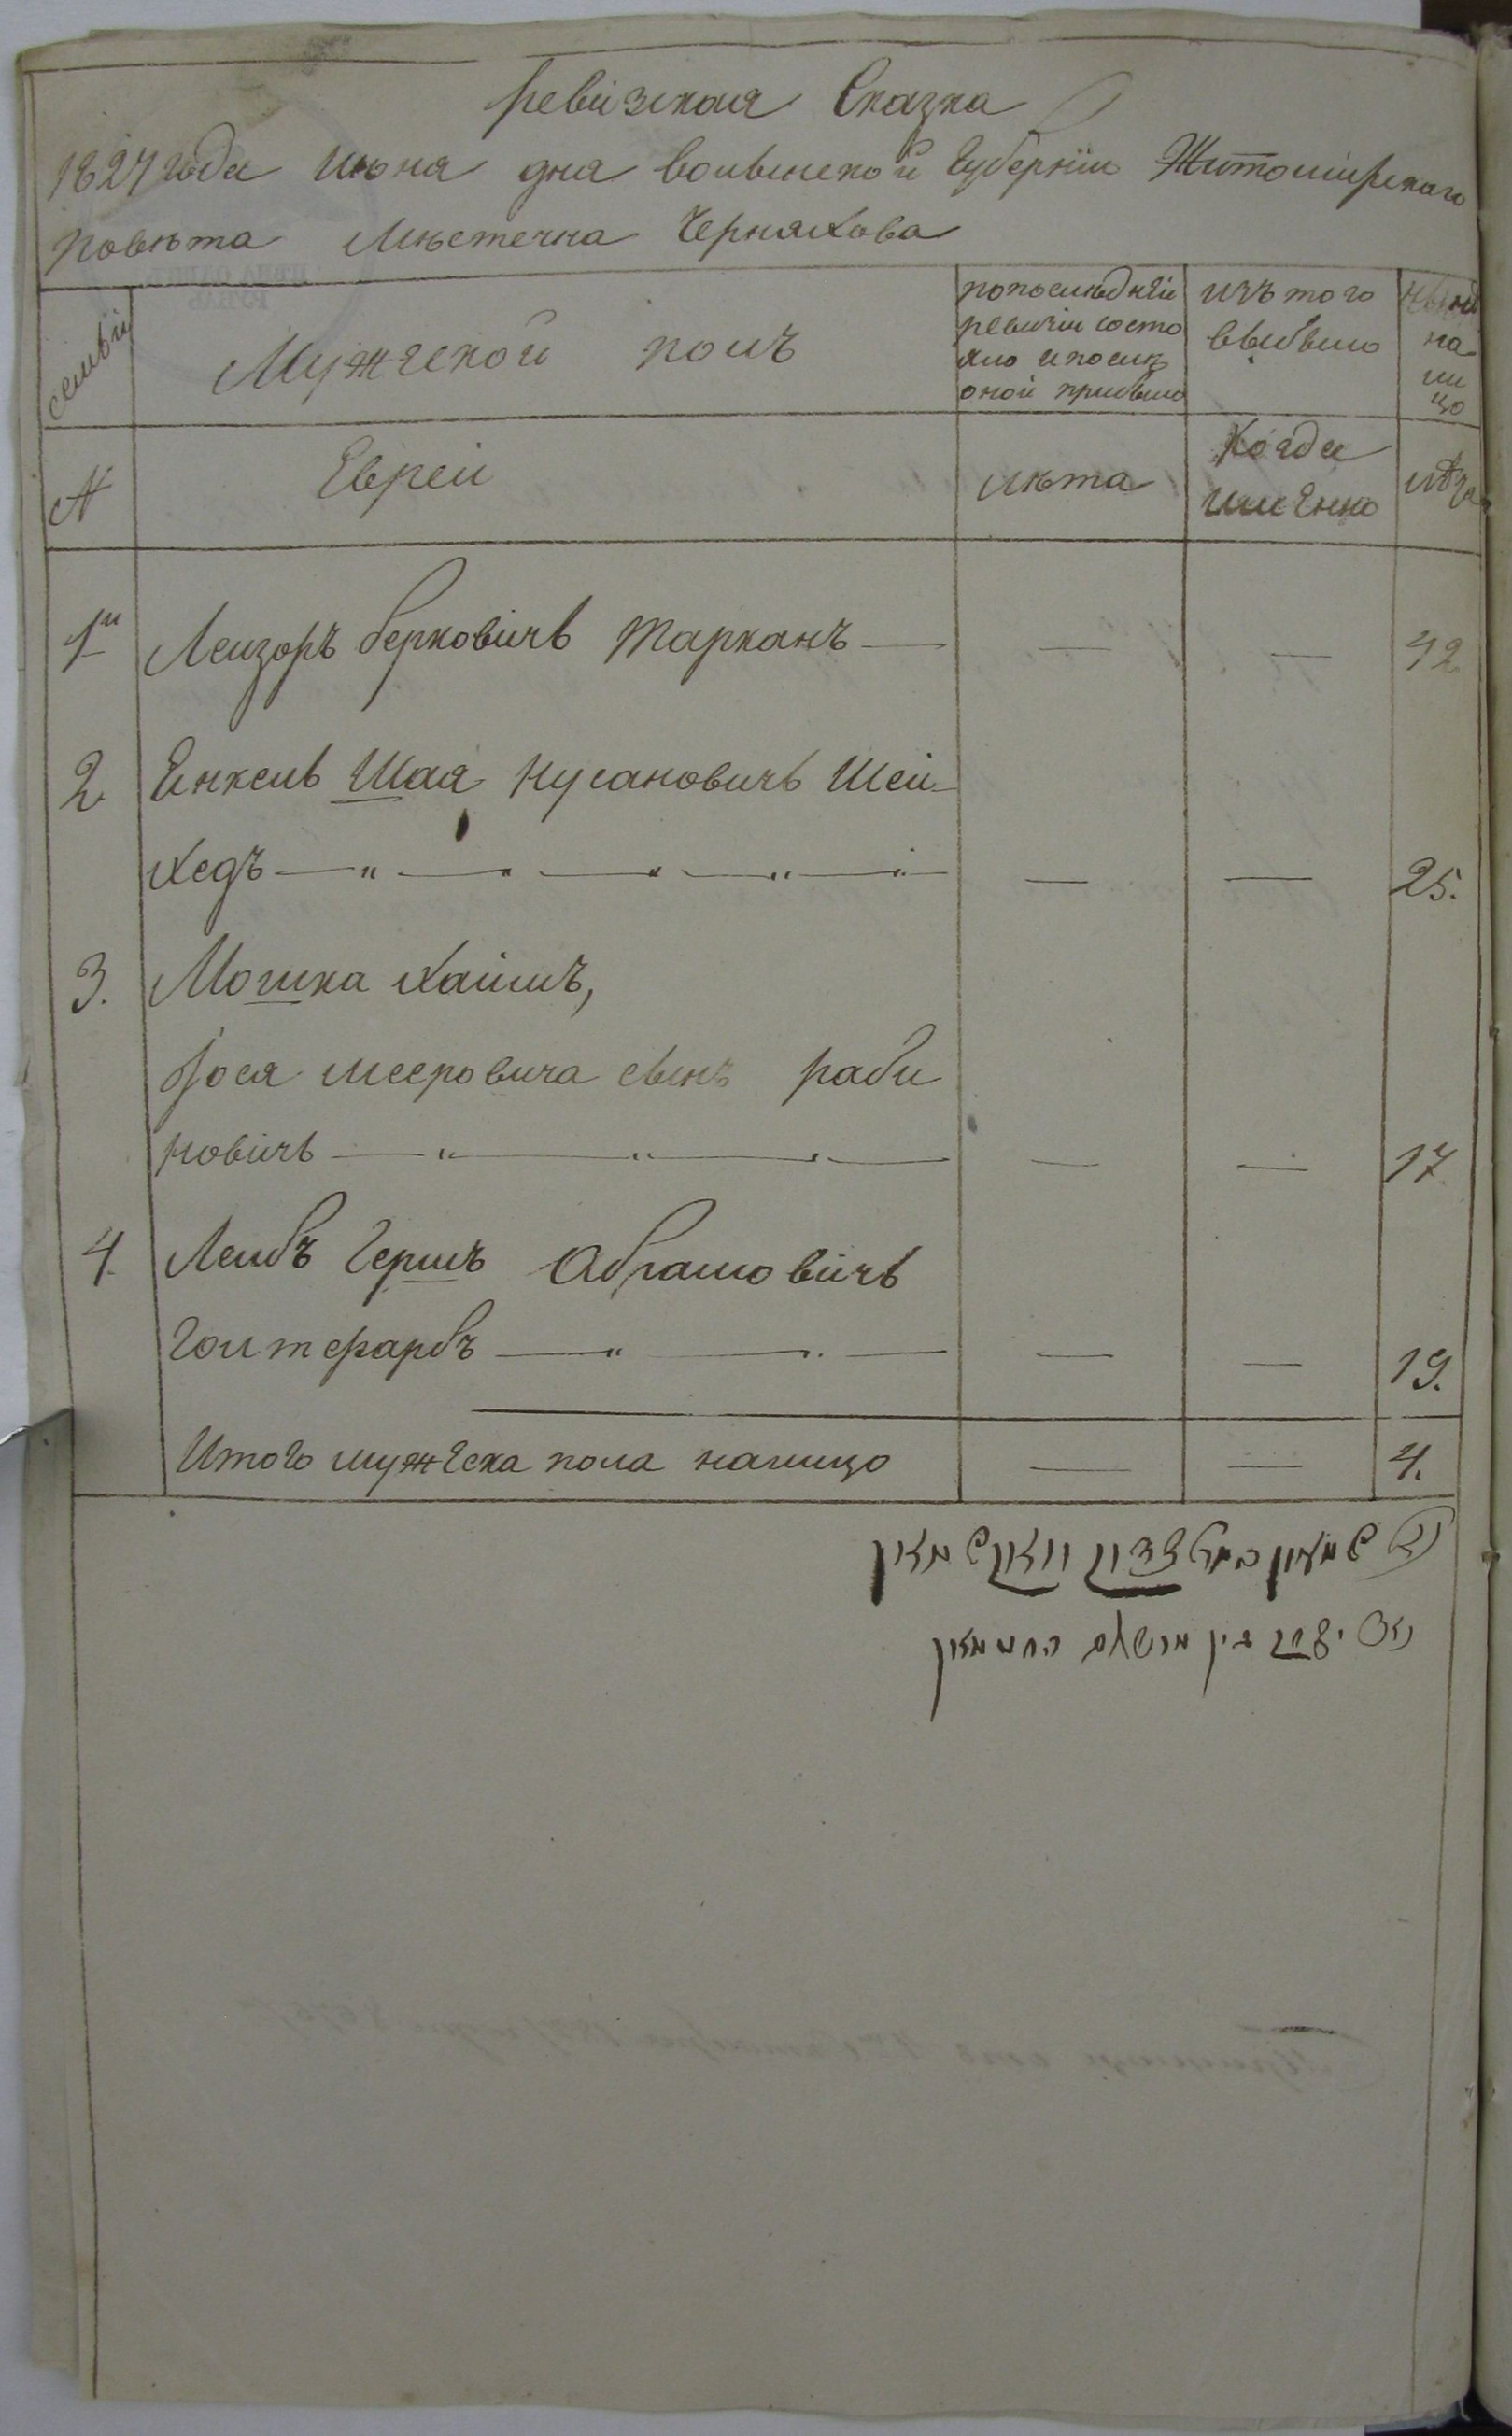 Ревизская Сказка
1827 года июня дня волынской Губернии Житомирскаго
повѣта Мѣстечка Чернякова
семьи
Мужеской полъ
попослѣдней ревизіи состо яло ипослѣ оной прибыло
изъ того выбыло
нынѣ на ли цо
№
Евреи
лѣта
Когда имЕнно
лѣта
1й Лейзоръ берковичъ Тарканъ — — — 42
2 Енкель Шая Нусановичъ Шей-
хедъ — " — " — " — " — — — 25.
3. Мошка Хаимъ,
Іося меєровича сынъ раби
новичъ — " — " — " — — — 17
4. Лейбъ Гершъ Абрамовичъ
Гольтфарбъ — " — . — — — 19.
Итого мужЕска пола налицо — — 4.
שמעון